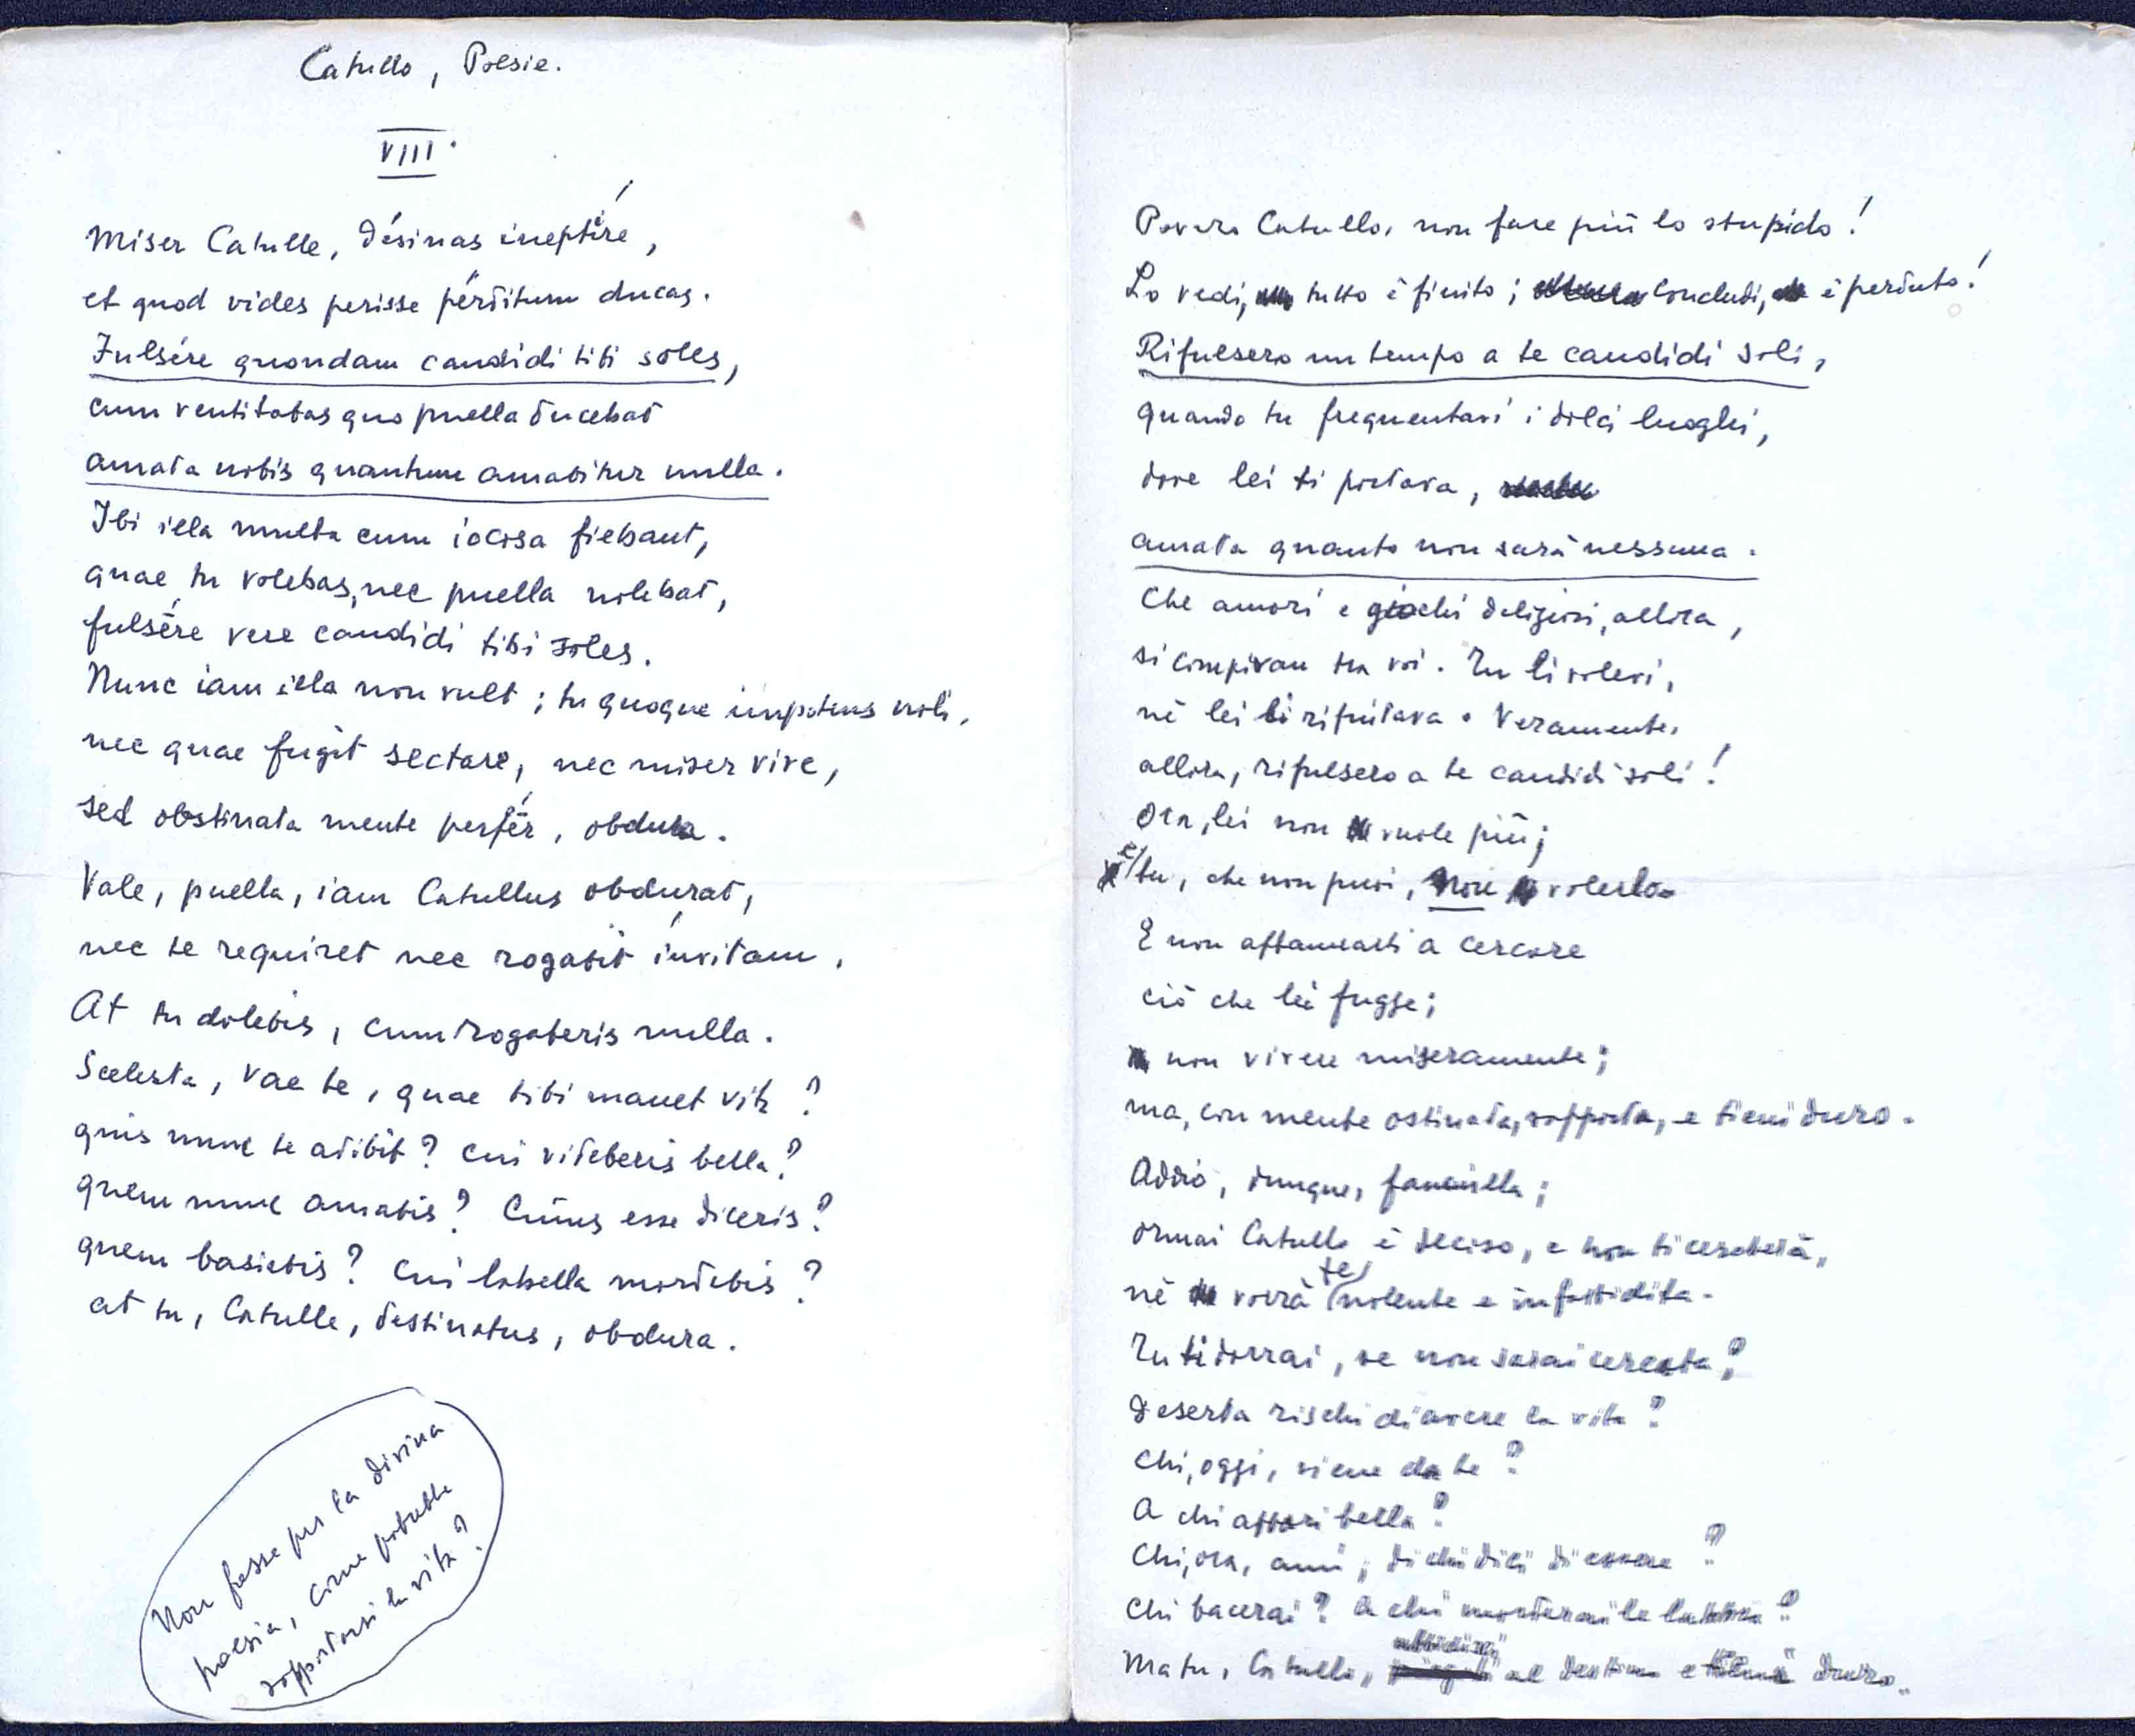 Catullo, Poesie.
VIII.
Miser Catulle, désinas ineptíre,
et quod vides perisse pérditum ducas.
Fulsére quondam candidi tibi soles,
cum ventitabas quo puella ducebat
amata nobis quantum amabitur nulla.
Ibi illa multa cum iocosa fiebant,
quae tu volebas, nec puella nolebat,
fulsére vere candidi tibi soles.
Nunc iam illa non vult; tu quoque impotens noli,
nec quae fugit sectare, nec miser vive,
sed obstinata mente perfér, obdura.
Vale, puella, iam Catullus obdurat,
nec te requiret nec rogabit ínvitam.
At tu dolebis, cum rogaberis nulla.
Scelesta, vae te, quae tibi manet vita?
quis nunc te adibit? cui videberis bella?
quem nunc amabis? Cuius esse diceris?
quem basiabis? Cui labella mordebis?
at tu, Catulle, destinatus, obdura.
Non fosse per la divina
poesia, come potrebbe
sopportarsi la vita?
Povero Catullo, non fare più lo stupido!
Lo vedi, tutto è finito; concludi, è perduto!
Rifulsero un tempo a te candidi soli,
quando tu frequentavi i dolci luoghi,
dove lei ti portava,
amata quanto non sarà nessuna.
Che amori e giochi deliziosi, allora,
si compivan tra voi. Tu li volevi,
né lei li rifiutava. Veramente,
allora, rifulsero a te candidi soli!
Ora, lei non vuole più;
e tu, che non puoi, non volerlo.
E non affannarti a cercare
ciò che lei fugge;
non vivere miseramente;
ma, con mente ostinata, sopporta, e tieni duro.
Addio, dunque, fanciulla;
ormai Catullo è deciso, e non ti cercherà,
né vorrà te nolente e infastidita.
Tu ti dorrai, se non sarai cercata?
Deserta rischi di avere la vita?
Chi, oggi, viene da te?
A chi appari bella?
Chi, ora, ami; di chi dici di essere?
Chi bacerai? A chi morderai le labbra?
Ma tu, Catullo, al destino e tieni duro.